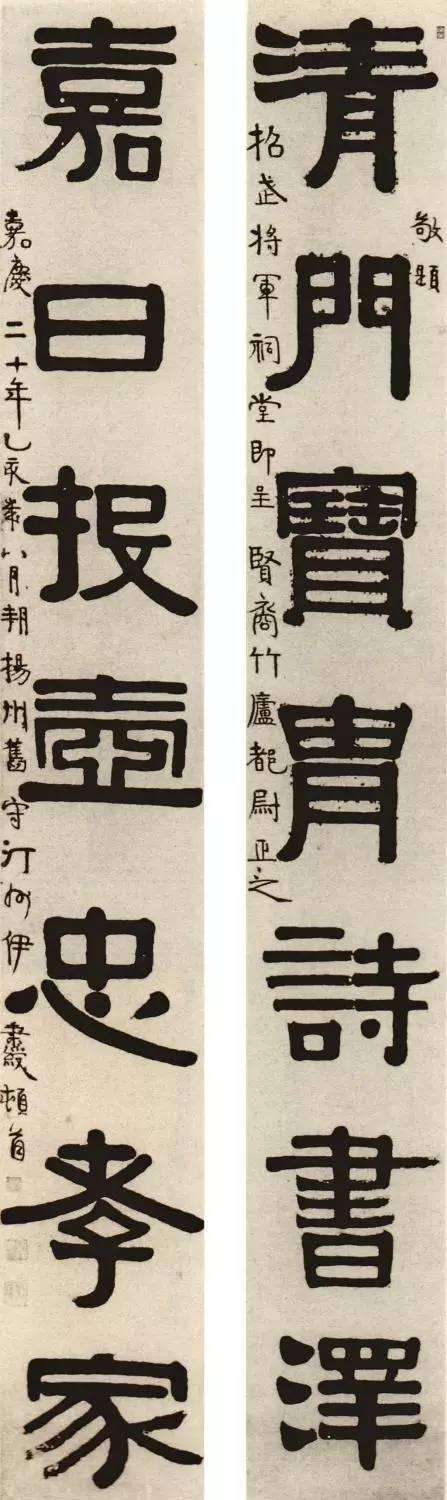 敬題
清門寶胄詩書澤
招武將軍祠堂即呈賢裔竹廬都尉正之
嘉日投壺忠孝家
嘉慶二十年乙亥歲八月朔揚州舊守汀州伊秉綬頓首